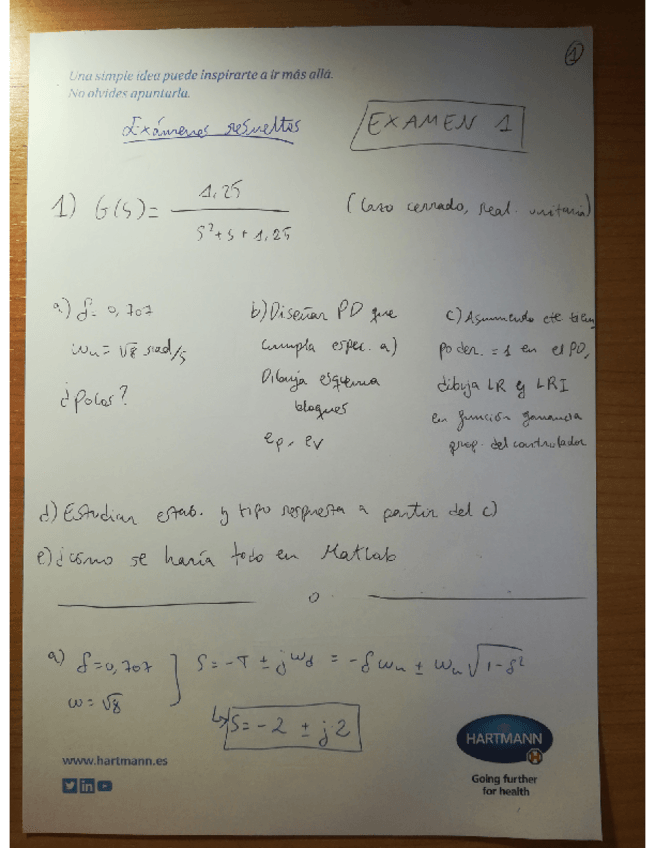 1
Una simple idea puede inspirarte a ir más allá.
No olvides apuntarla.
Exámenes resueltos
EXAMEN 1
1) G(s) = 1,25 / s² + s + 1,25 (Lazo cerrado, real. unitaria)
a) δ = 0,707
ωn = √8 rad/s
¿Polos?
b) Diseñar PD que
cumpla espec. a)
Dibuja esquema
bloques
ep, ev
c) Asumiendo cte tiem
po der. = 1 en el PD,
dibuja LR y LRI
en función ganancia
prop. del controlador
d) Estudiar estab. y tipo respuesta a partir del c)
e) ¿cómo se haría todo en Matlab
o
a) δ = 0,707
ω = √8
s = -σ ± jωd = -δωn ± ωn√1-δ²
↳ s = -2 ± j2
www.hartmann.es
HARTMANN
Going further
for health